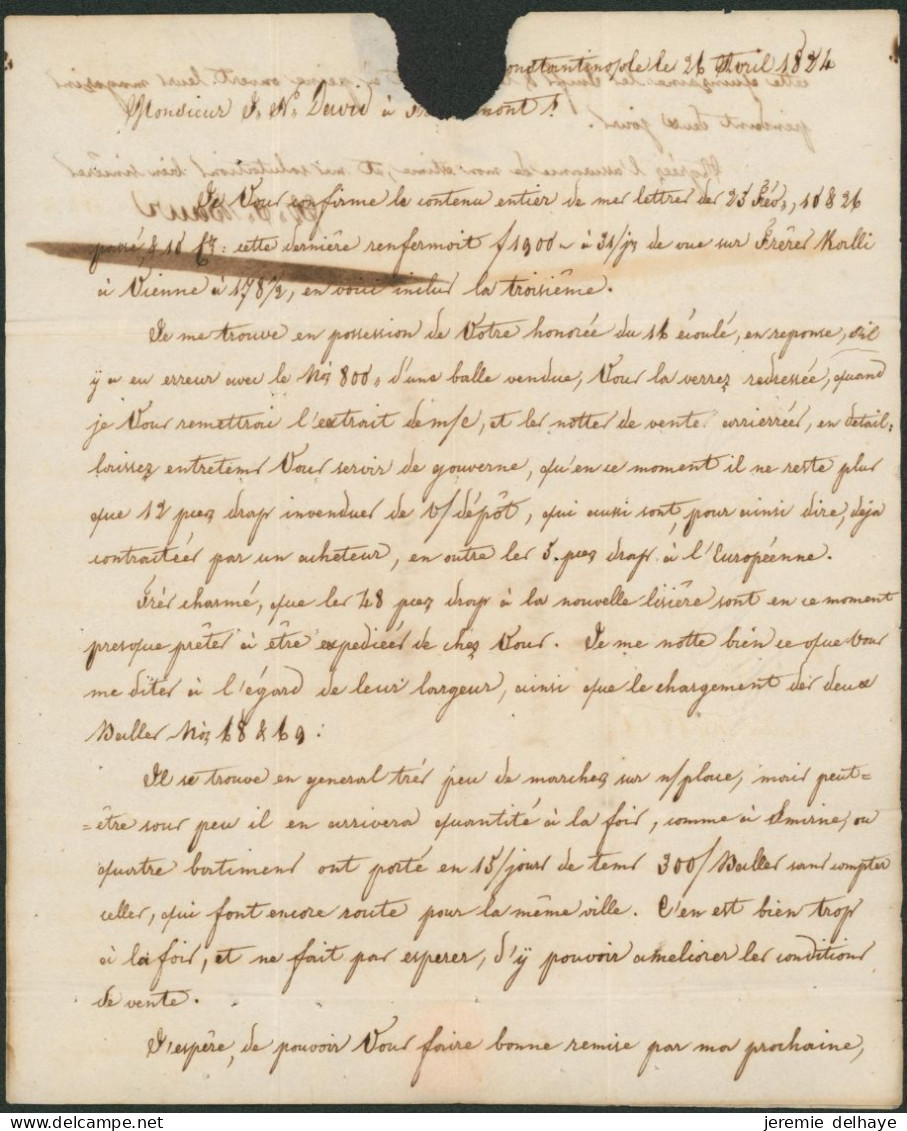 Constantinople le 26 Avril 1824
Monsieur J. N. David à mont s/.
Je Vous confirme le contenu entier de mes lettres des 25 Fév,, 10 & 26
passé, & 10 ct: cette dernière renfermoit f 1900 ~ à 31/js de vue sur Frères Moralli
à Vienne à 178 1/2, en voici inclus la troisième.
Je me trouve en possession de Votre honorée du 16 écoulé, en reponse, s'il
ÿ a eu erreur avec le No; 800,, d'une balle vendue, Vous la verrez redressée, quand
je Vous remettrai l'extrait de m/c, et les nottes de vente arrierrées, en detail:
laissez entretems Vous servir de gouverne, qu'en ce moment il ne reste plus
que 12 pces drap invendues de v/dépôt, qui aussi sont, pour ainsi dire, deja
contractées par un acheteur, en outre les 5. pces drap à l'Européenne.
Très charmé, que les 48 pces drap à la nouvelle lisière sont en ce moment
presque prêtes à être expediées de chez Vous. Je me notte bien ce que Vous
me dites à l'égard de leur largeur, ainsi que le chargement des deux
Balles Nos 68 & 69:
Il se trouve en general très peu de marches sur n/place, mais peut=
=être sous peu il en arrivera quantité à la fois, comme à Smirne, ou
quatre batimens ont porté en 15/jours de tems 300/Balles sans compter
celles, qui font encore route pour la même ville. C'en est bien trop
à la fois, et ne fait pas esperer, d'ÿ pouvoir ameliorer les conditions
de vente.
J'espère, de pouvoir Vous faire bonne remise par ma prochaine,
jeremie delhaye